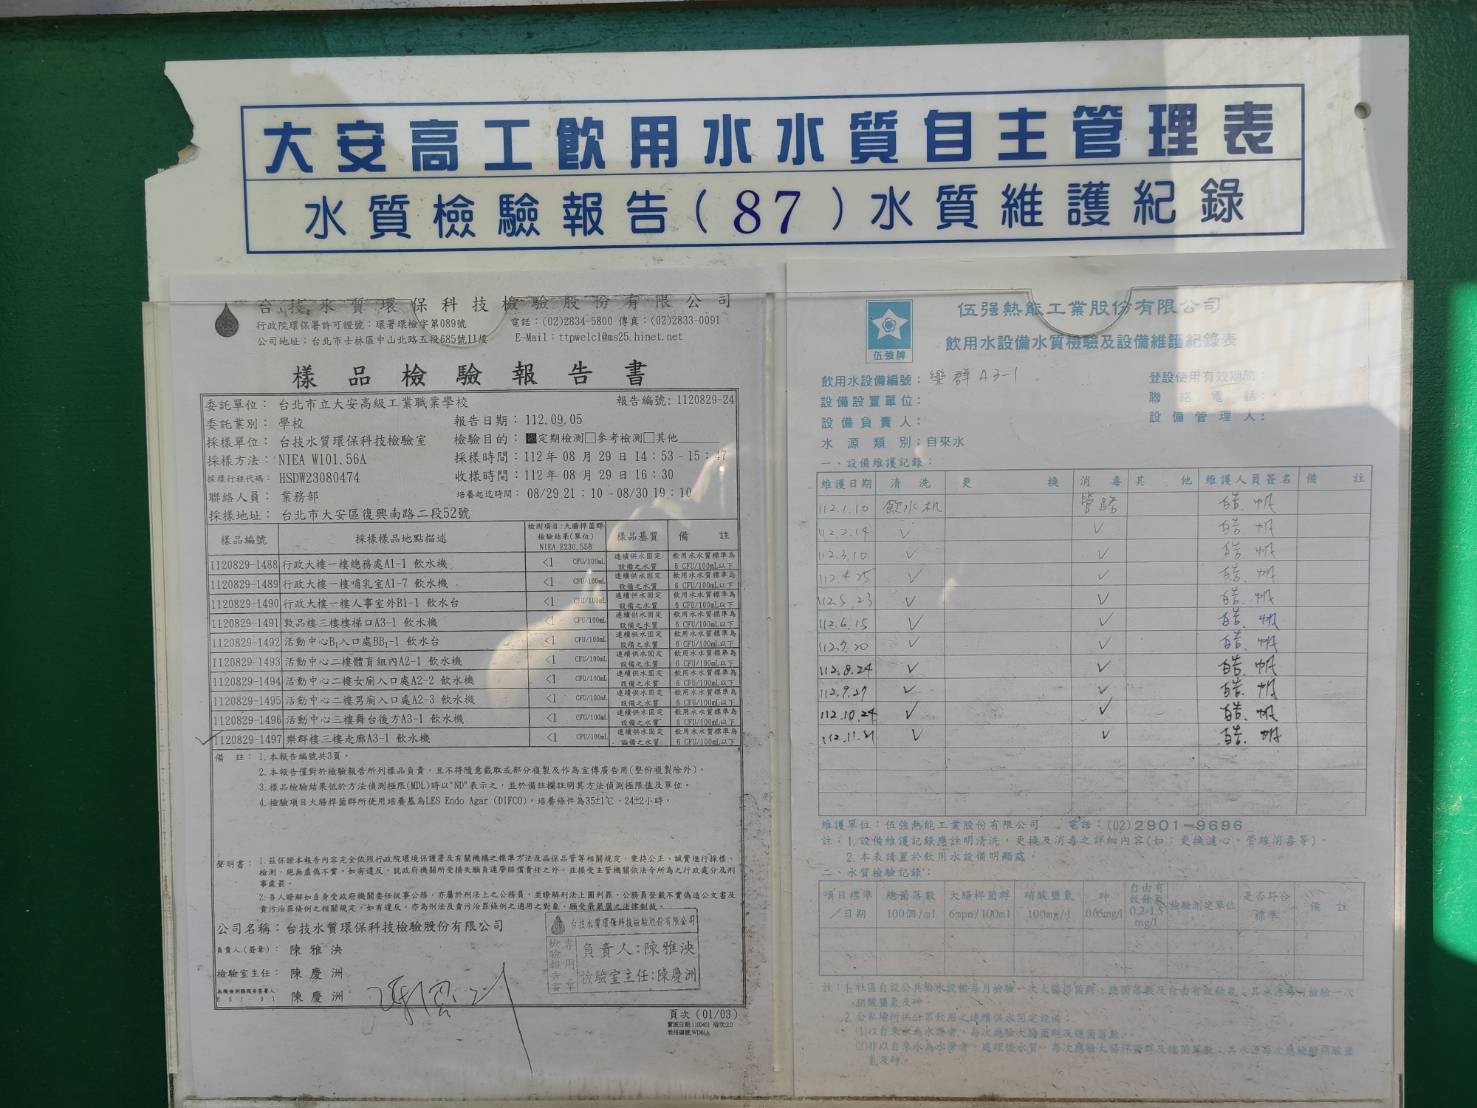 大安高工飲用水水質自主管理表
水質檢驗報告(87)水質維護紀錄
台技水質環保科技檢驗股份有限公司
行政院環保署許可證號：環署環檢字第089號
電話：(02)2834-5800 傳真：(02)2833-0091
公司地址：台北市士林區中山北路五段685號11樓
E-Mail：ttpwelcl@ms25.hinet.net
樣品檢驗報告書
委託單位：台北市立大安高級工業職業學校
報告編號：1120829-24
委託業別：學校
報告日期：112.09.05
採樣單位：台技水質環保科技檢驗室
檢驗目的：■定期檢測□參考檢測□其他
採樣方法：NIEA W101.56A
採樣時間：112年08月29日14：53-15：47
採樣行程代碼：HSDW23080474
收樣時間：112年08月29日16：30
聯絡人員：業務部
培養起迄時間：08/29 21：10-08/30 19：10
採樣地址：台北市大安區復興南路二段52號
樣品編號 採樣樣品地點描述 檢測項目:大腸桿菌群 檢驗結果(單位) NIEA E230.55B 樣品基質 備註
1120829-1488 行政大樓一樓總務處A1-1 飲水機 <1 CFU/100mL 連續供水固定設備之水質 飲用水水質標準為6 CFU/100mL以下
1120829-1489 行政大樓一樓哺乳室A1-7 飲水機 <1 CFU/100mL 連續供水固定設備之水質 飲用水水質標準為6 CFU/100mL以下
1120829-1490 行政大樓一樓人事室外B1-1 飲水台 <1 CFU/100mL 連續供水固定設備之水質 飲用水水質標準為6 CFU/100mL以下
1120829-1491 敦品樓三樓樓梯口A3-1 飲水機 <1 CFU/100mL 連續供水固定設備之水質 飲用水水質標準為6 CFU/100mL以下
1120829-1492 活動中心B1入口處BB1-1 飲水台 <1 CFU/100mL 連續供水固定設備之水質 飲用水水質標準為6 CFU/100mL以下
1120829-1493 活動中心二樓體育組內A2-1 飲水機 <1 CFU/100mL 連續供水固定設備之水質 飲用水水質標準為6 CFU/100mL以下
1120829-1494 活動中心二樓女廁入口處A2-2 飲水機 <1 CFU/100mL 連續供水固定設備之水質 飲用水水質標準為6 CFU/100mL以下
1120829-1495 活動中心二樓男廁入口處A2-3 飲水機 <1 CFU/100mL 連續供水固定設備之水質 飲用水水質標準為6 CFU/100mL以下
1120829-1496 活動中心三樓舞台後方A3-1 飲水機 <1 CFU/100mL 連續供水固定設備之水質 飲用水水質標準為6 CFU/100mL以下
✓ 1120829-1497 樂群樓三樓走廊A3-1 飲水機 <1 CFU/100mL 連續供水固定設備之水質 飲用水水質標準為6 CFU/100mL以下
備註：1.本報告編號共3頁。
2.本報告僅對於檢驗報告所列樣品負責，且不得隨意截取或部分複製及作為宣傳廣告用(整份複製除外)。
3.樣品檢驗結果低於方法偵測極限(MDL)時以"ND"表示之，並於備註欄註明其方法偵測極限值及單位。
4.檢驗項目大腸桿菌群所使用培養基為LES Endo Agar (DIFCO)，培養條件為35±1℃，24±2小時。
聲明書：1.茲保證本報告內容完全依照行政院環境保護署及有關機構之標準方法及品保品管等相關規定，秉持公正、誠實進行採樣、
檢測。絕無虛偽不實，如有違反，就政府機關所受損失願負連帶賠償責任之外，並接受主管機關依法令所為之行政處分及刑
事處罰。
2.吾人瞭解如自身受政府機關委任從事公務，亦屬於刑法上之公務員，並瞭解刑法上圖利罪、公務員登載不實偽造公文書及
貪污治罪條例之相關規定，如有違反，亦為刑法及貪污治罪條例之適用之對象，願受最嚴厲之法律制裁。
公司名稱：台技水質環保科技檢驗股份有限公司
負責人(簽章)：陳雅泱
檢驗室主任：陳慶洲
陳慶洲
台技水質環保科技檢驗股份有限公司
檢驗報告書專用章
負責人:陳雅泱
檢驗室主任:陳慶洲
頁次(01/03)
伍強牌
伍強熱能工業股份有限公司
飲用水設備水質檢驗及設備維護紀錄表
飲用水設備編號：樂群A3-1
登設使用有效期間：
設備設置單位：
聯絡電話：
設備負責人：
設備管理人：
水源類別：自來水
一、設備維護記錄：
維護日期 清洗 更換 消毒 其他 維護人員簽名 備註
112.1.10 飲水机 管路
112.2.14 ✓ ✓
112.3.10 ✓ ✓
112.4.25 ✓ ✓
112.5.23 ✓ ✓
112.6.15 ✓ ✓
112.7.20 ✓ ✓
112.8.24 ✓ ✓
112.9.27 ✓ ✓
112.10.24 ✓ ✓
112.11.21 ✓ ✓
維護單位：伍強熱能工業股份有限公司 電話：(02)2901-9696
註：1.設備維護記錄應註明清洗、更換及消毒之詳細內容(如：更換濾心、管線消毒等)。
2.本表請置於飲用水設備明顯處。
二、水質檢驗記錄：
項目標準／日期 總菌落數 100個/ml 大腸桿菌群 6mpn/100ml 硝酸鹽氮 100mg/l 砷 0.05mg/l 自由有效餘氯 0.2-1.5 mg/l 檢驗測定單位 是否符合標準 備註